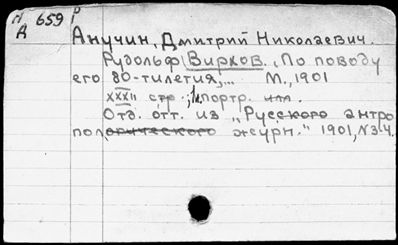 И 659 Р
А
Анучин, Дмитрий Николаевич.
Рудольф Вирхов. По поводу
его 80-тилетия;... М., 1901
XXXII стр.; 1 портр. илл.
Отд. отт. из „Русского антро
пологического журн." 1901, N 3-4.